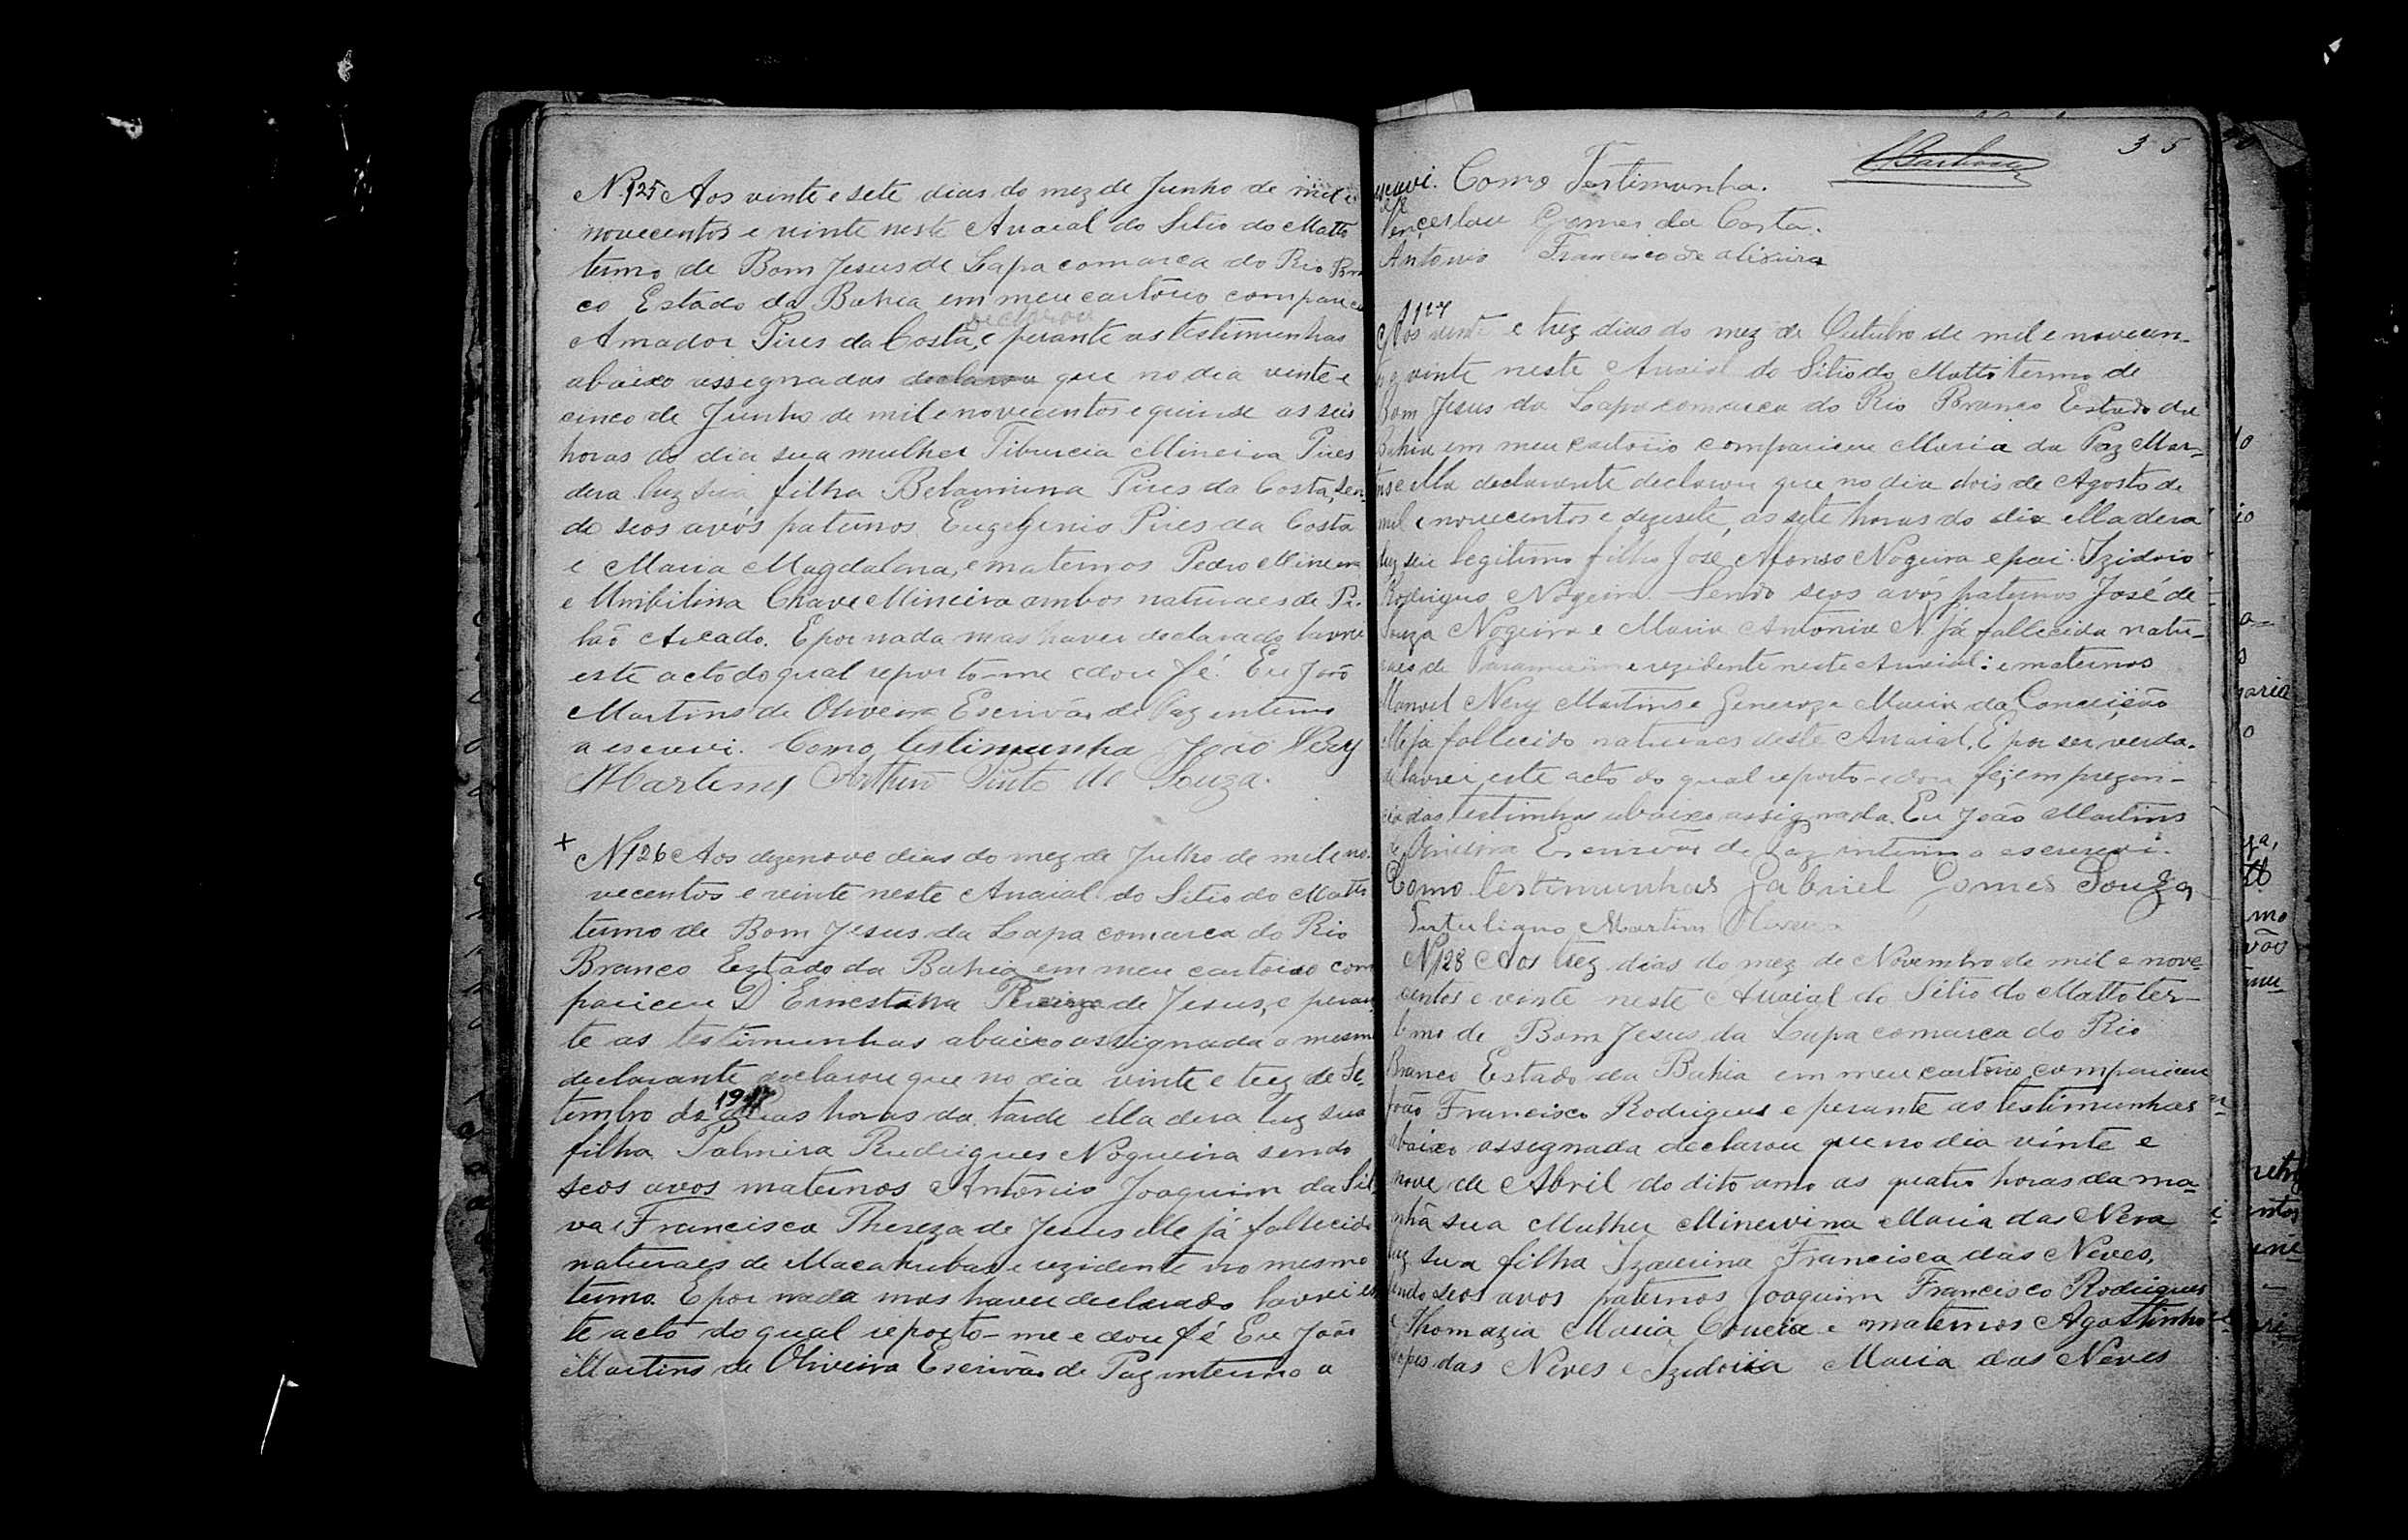 N. 125 Aos vinte e sete dias do mez de Junho de mil e
novecentos e vinte neste Arraial do Sitio do Matto
termo de Bom Jesus de Lapa comarca do Rio Bran
co Estado da Bahia em meu cartorio compareceu
declarou
Amador Pires da Costa, e perante as testimunhas
abaixo assignadas declarou que no dia vinte e
cinco de Junho de mil e novecentos e quinse as seis
horas do dia sua mulher Tiburcia Mineira Pires
dera luz sua filha Belarmina Pires da Costa, sen-
do seos avós paternos Eugegenio Pires da Costa
e Maria Magdalena, e maternos Pedro Mineiro
e Umbilina Chave Mineira ambos naturaes de Pi-
lão Arcado. E por nada mas haver declarado lavrei
este acto do qual reporto-me e dou fé. Eu João
Martins de Oliveira Escrivão de Paz interino
a escrevi. Como testimunha João Nery
Martins Arthur Pinto de Souza.
+
N 126 Aos dezenove dias do mez de Julho de mil e no-
vecentos e veinte neste Arraial do Sitio do Matto
termo de Bom Jesus da Lapa comarca do Rio
Branco Estado da Bahia em meu cartorio com
pariceu D Ernestina Tereiza de Jesus, e peran
te as testimunhas abaixo assignada a mesma
declarante declarou que no dia vinte e trez de Se-
1917
tembro de duas horas da tarde ella dera luz sua
filha Palmira Rudrigues Nogueira sendo
seos avos maternos Antonio Joaquim da Sil
va e Francisca Thereza de Jesus elle já fallecido
naturaes de Macahubas e rezidente no mesmo
termo. E por nada mas haver declarado lavrei es
te acto do qual reporto-me e dou fé Eu João
Martins de Oliveira Escrivão de Paz interino a
35
Barbosa
escrevi. Como Testimunha.
Venceslau Gomes da Costa.
Antonio Francisco de Oliveira
N 127
Aos vinte e trez dias do mez de Outubro de mil e novecen-
vinte neste Arraial do Sitio do Matto termo de
Bom Jesus da Lapa comarca do Rio Branco Estado da
Bahia em meu cartorio compariceu Maria da Paz Mar-
tins e ella declarante declarou que no dia dois de Agosto de
mil e novecentos e dezesete, as sete horas do dia ella dera
luz seu legitimo filho José Afonso Nogeira e pai Izidorio
Rodrigues Nogeira. Sendo seos avós paternos José de
Souza Nogeira e Maria Antonia N. já fallecida natu-
raes de e rezidente neste Arraial: e maternos
Manoel Nery Martins e Generoza Maria da Conceição
elle ja fallecido naturaes deste Arraial. E por ser verda-
de lavrei este acto do qual reporto-e dou fé, em prezen-
cia das testimnhas abaixo assignada. Eu João Martins
de Oliveira Escrivão de Paz interino a escrevi.
Como testimunhas Gabriel Gomes Souza
Tertuliano Martins Oliveira
N 128 Aos trez dias do mez de Novembro de mil e nove-
centos e vinte neste Arraial do Sitio do Matto ter-
mo de Bom Jesus da Lapa comarca do Rio
Branco Estado da Bahia em meu cartorio compariceu
João Francisco Rodrigues e perante as testimunhas
abaixo assignada declarou que no dia vinte e
nove de Abril do dito anno as quatro horas da ma-
nhã sua Mulher Minervina Maria das Neva
luz sua filha Izaurina Francisca das Neves,
sendo seos avos paternos Joaquim Francisco Rodrigues
e Thomazia Maria Correia e maternos Agostinho
Lopes das Neves e Izidoria Maria das Neves